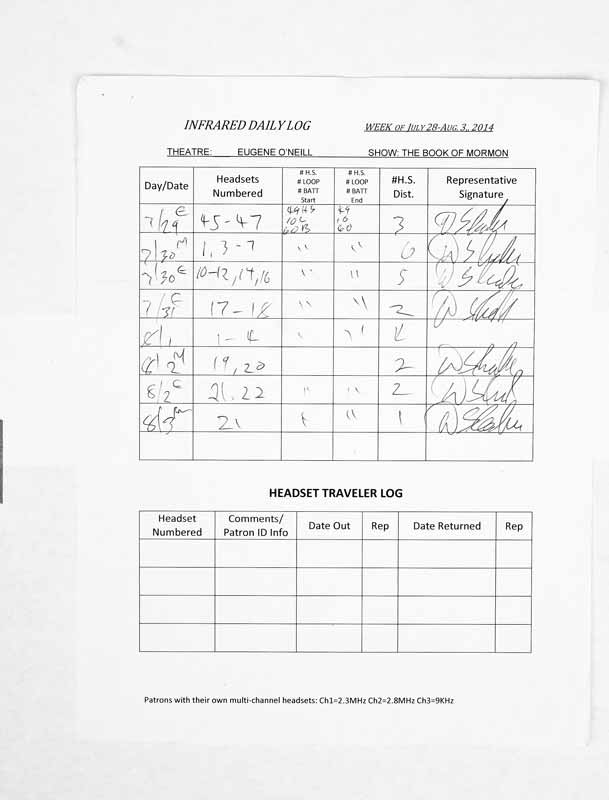 INFRARED DAILY LOG WEEK OF JULY 28-AUG. 3, 2014
THEATRE: EUGENE O'NEILL SHOW: THE BOOK OF MORMON
Day/Date Headsets Numbered # H.S. # LOOP # BATT Start # H.S. # LOOP # BATT End #H.S. Dist. Representative Signature
7/29 E 45-47 49HS 10L 60B 49 10 60 3
7/30 M 1, 3-7 " " 6
7/30 E 10-12, 14, 16 " " 5
7/31 E 17-18 " " 2
8/1 1-4 " " 4
8/2 M 19, 20 2
8/2 E 21, 22 " " 2
8/3 M 21 " " 1
HEADSET TRAVELER LOG
Headset Numbered Comments/ Patron ID Info Date Out Rep Date Returned Rep
Patrons with their own multi-channel headsets: Ch1=2.3MHz Ch2=2.8MHz Ch3=9KHz